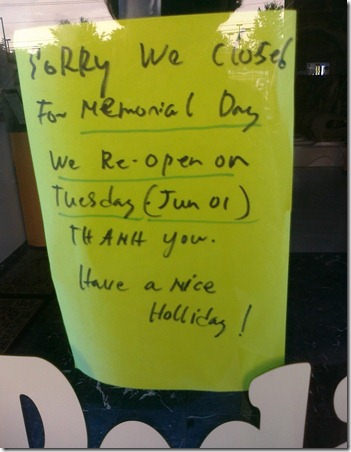 Sorry We Closed
For Memorial Day
We Re-open on
Tuesday (Jun 01)
THANH you.
Have a nice
Holliday!